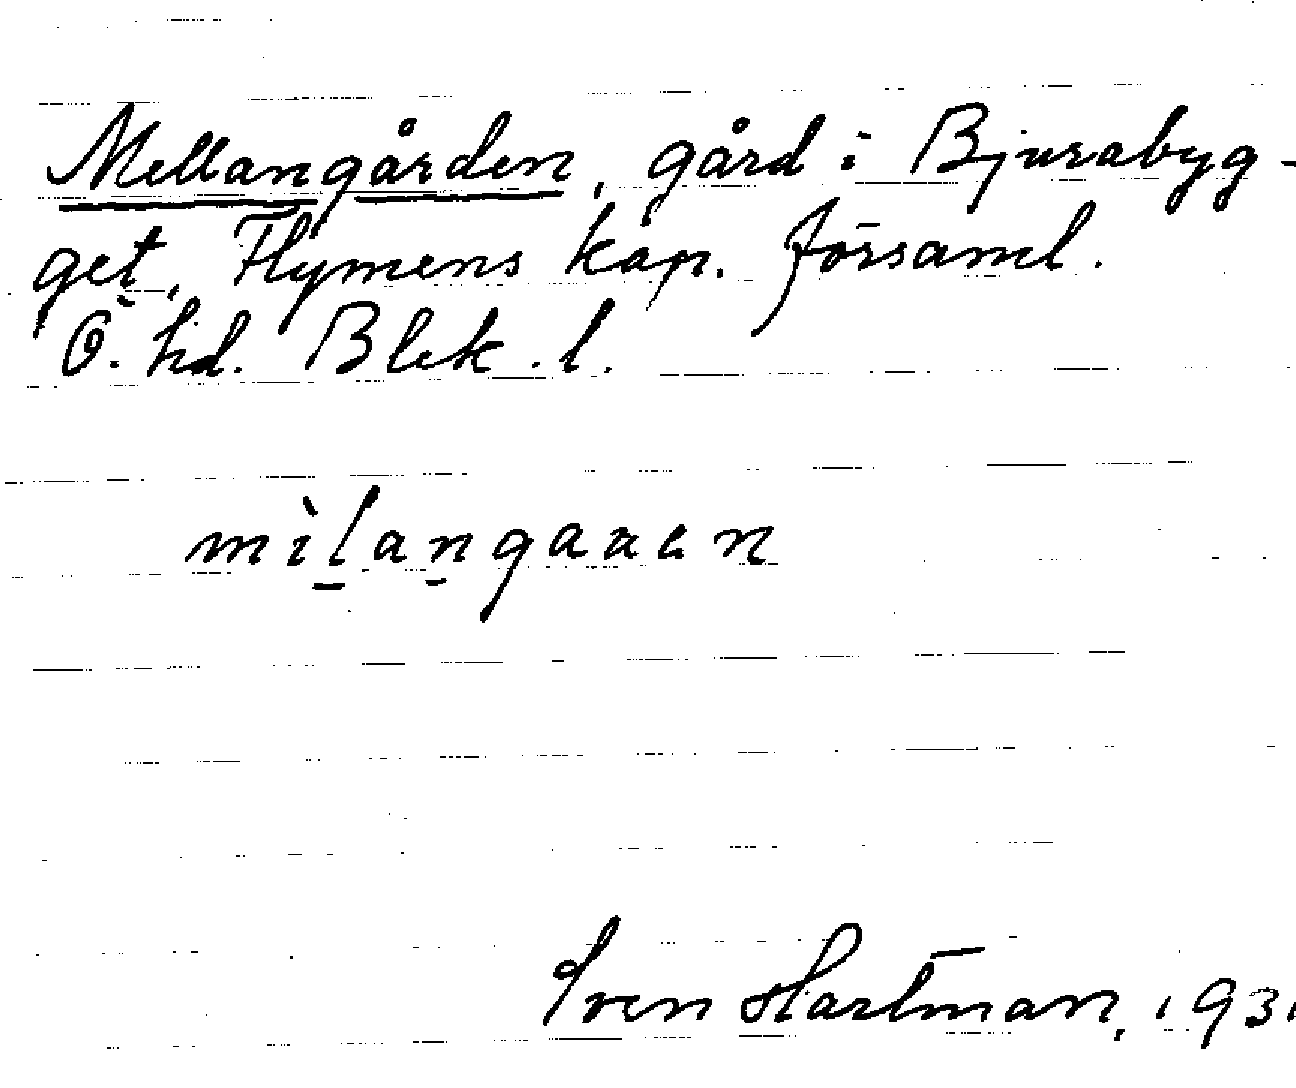 Mellangården, gård i Bjurabyg-
get, Flymens kap. församl.
Ö. hd. Blek. l.
mìlangaaen
Sven Hartman, 193